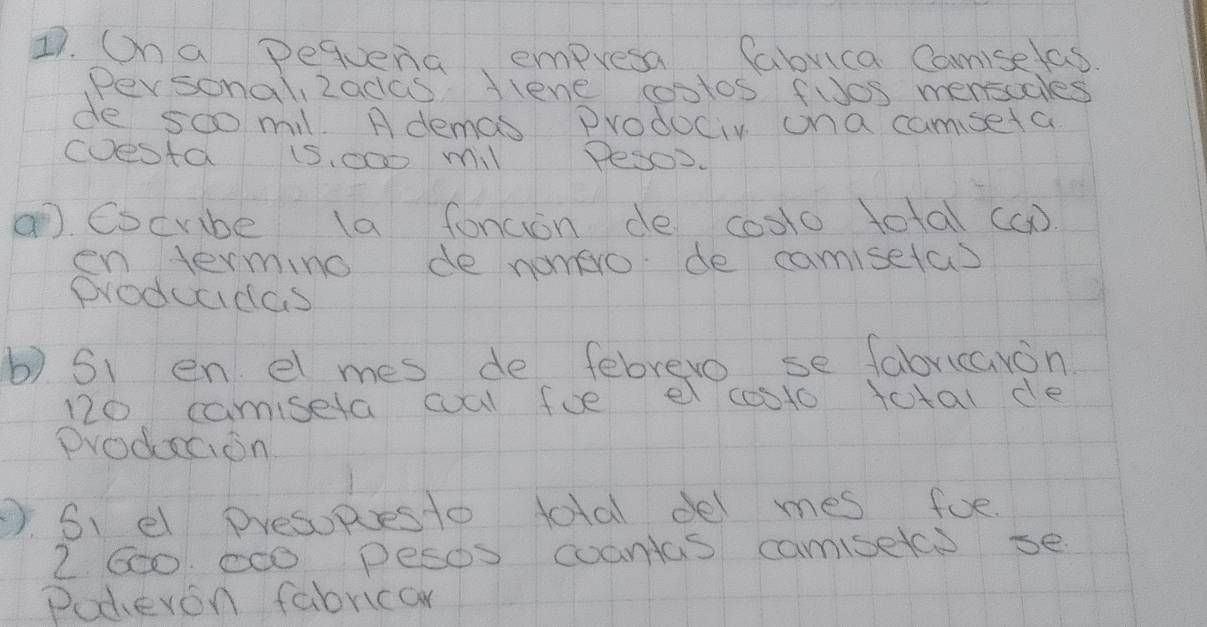 1). Una pequeña empresa fabrica camisetas.
personalizadas tiene costos fijos mensuales
de 500 mil. Ademas producir una camiseta
cuesta 15.000 mil pesos.
a). Escribe la función de costo total (Cx).
en termino de numero de camisetas
producidas
b) Si en el mes de febrero se fabricarón.
120 camiseta cual fue el costo total de
producción
). Si el presupuesto total del mes fue.
2 600.000 pesos cuantas camisetas se
Pudierón fabricar